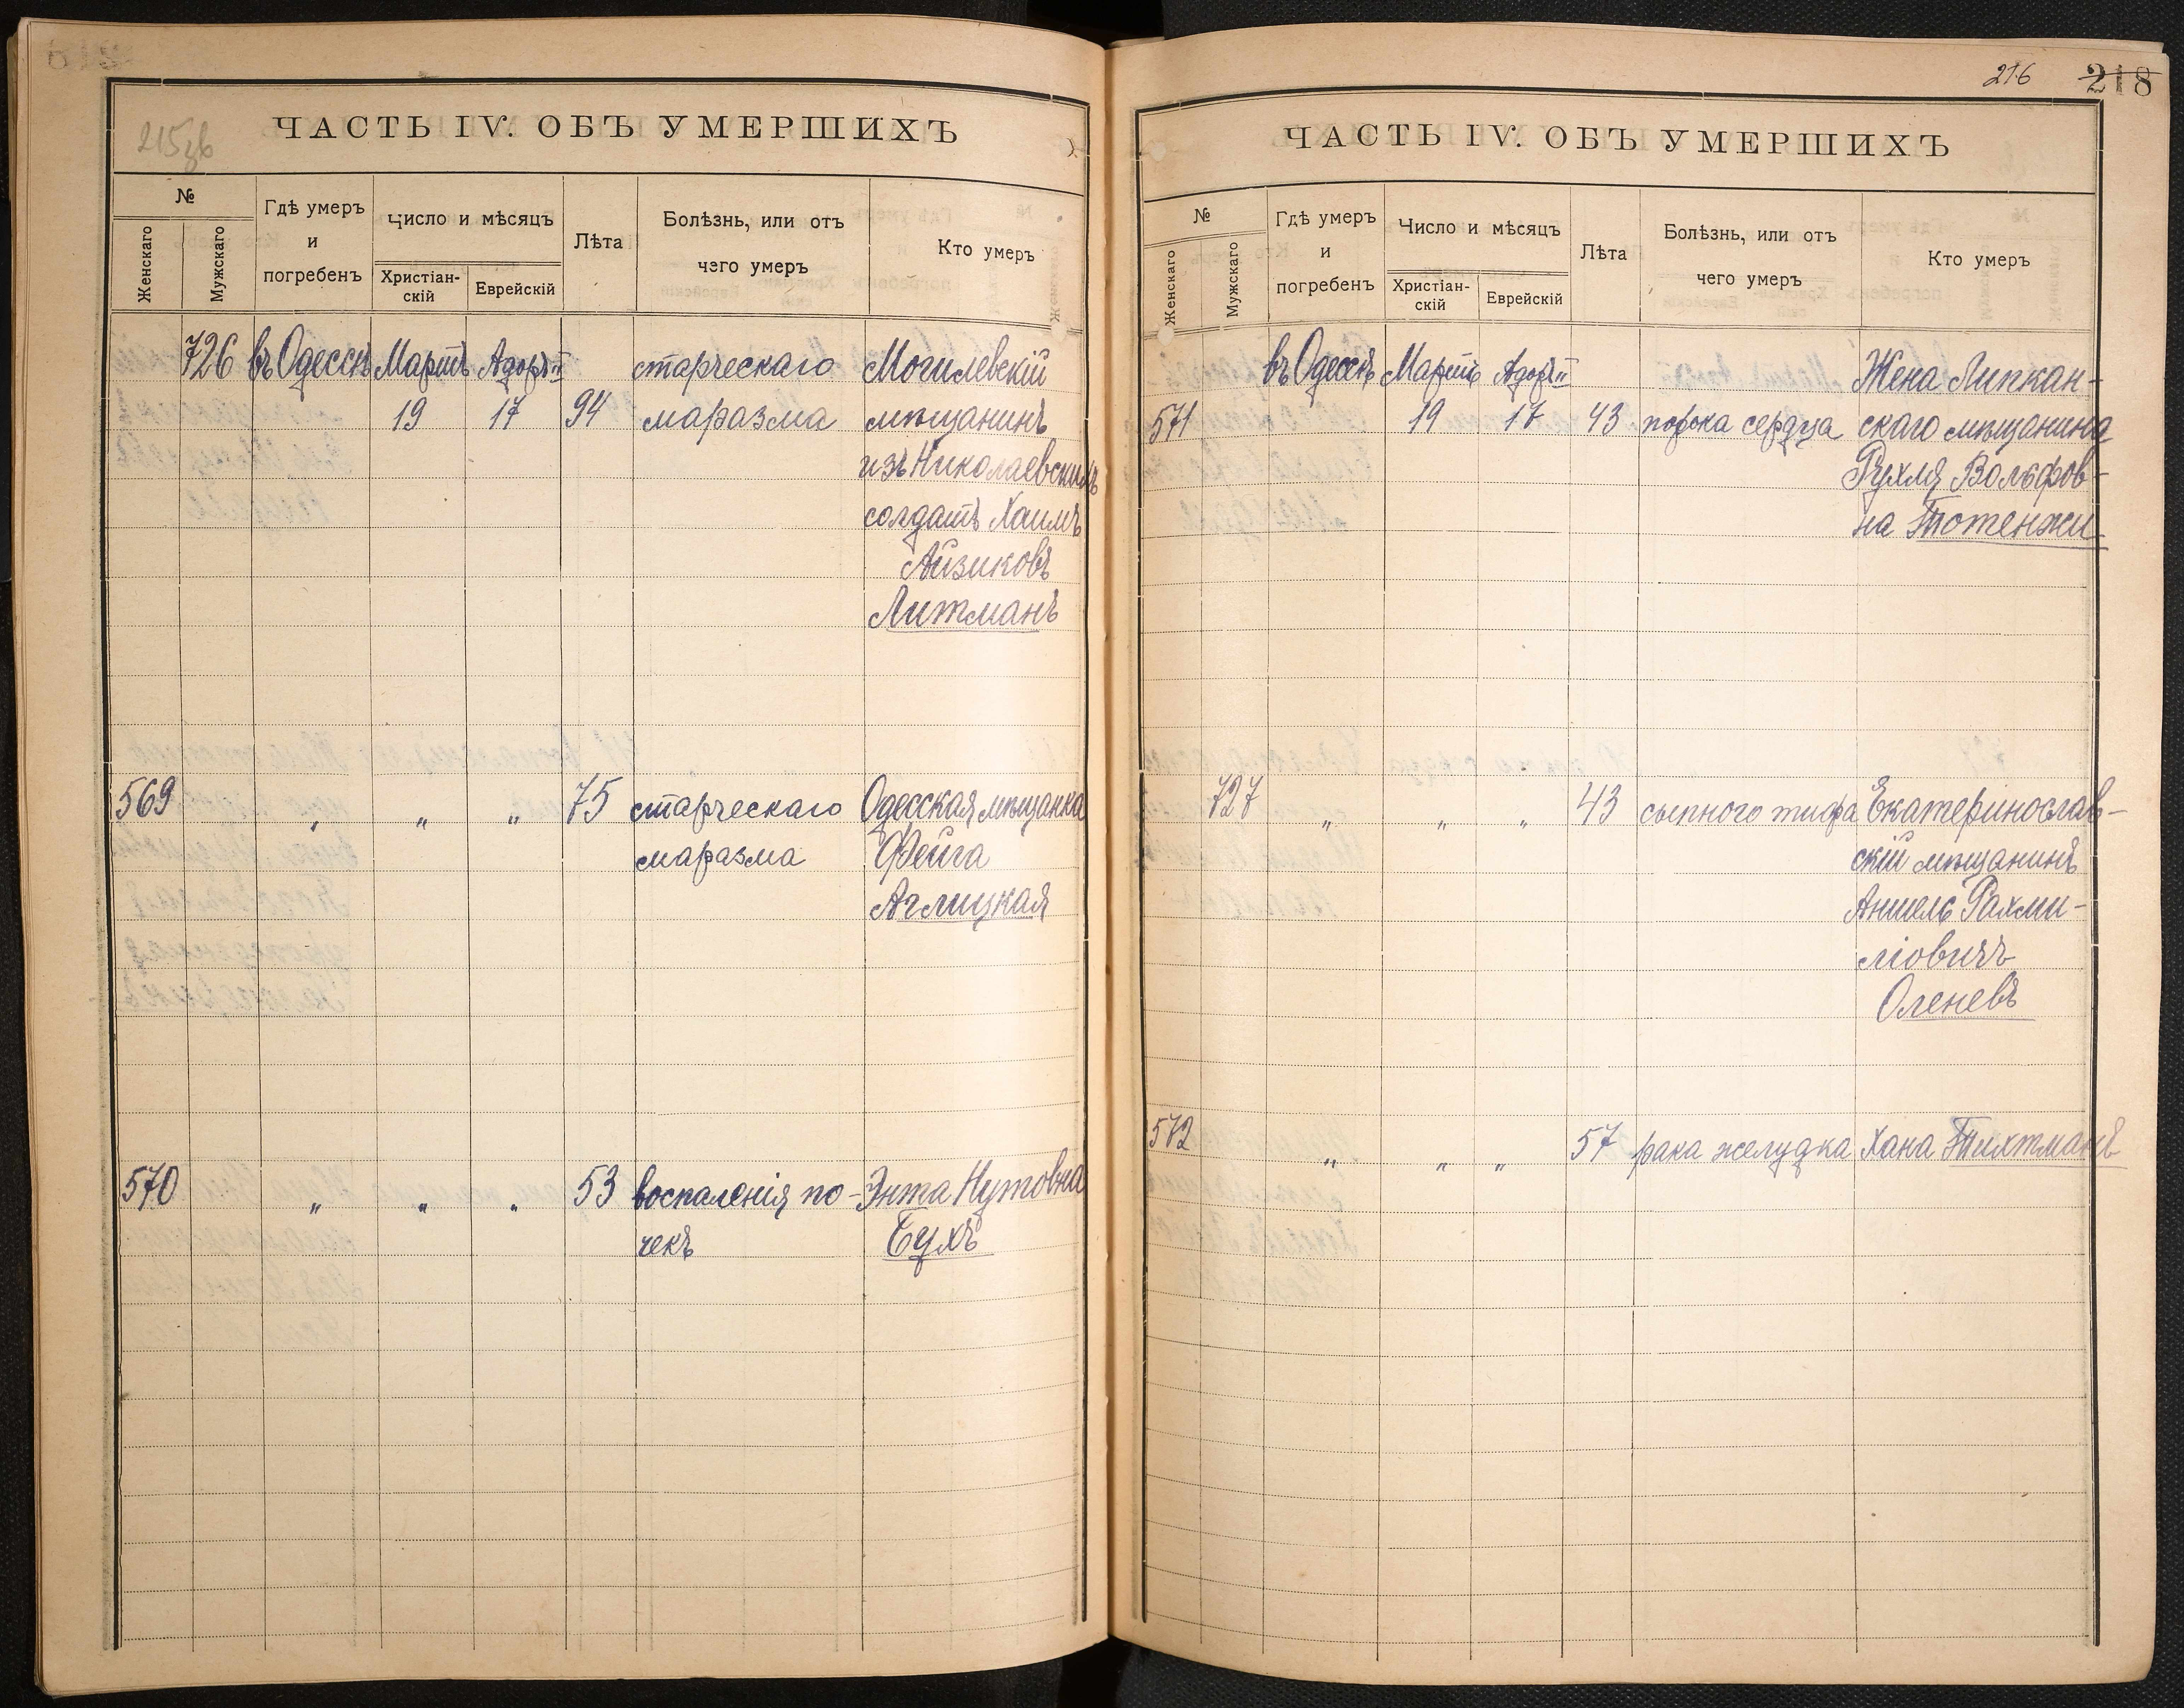 215зв
ЧАСТЬ IV. ОБЪ УМЕРШИХЪ
№
Женскаго
Мужскаго
Гдѣ умеръ
и
погребенъ
Число и мѣсяцъ
Христіан-
скій
Еврейскій
Лѣта
Болѣзнь, или отъ
чего умеръ
Кто умеръ
726 въ Одессѣ Мартъ Адоръ II старческаго Могилевскій
19 17 94 маразма мѣщанинъ
изъ Николаевскихъ
солдатъ Хаимъ
Айзиковъ
Литманъ
569 „ „ „ 75 старческаго Одесская мѣщанка
маразма Фейга
Аглицкая
570 „ „ „ 53 воспаленія по- Энта Нутовна
чекъ Бухъ
216 218
ЧАСТЬ IV. ОБЪ УМЕРШИХЪ
№
Женскаго
Мужскаго
Гдѣ умеръ
и
погребенъ
Число и мѣсяцъ
Христіан-
скій
Еврейскій
Лѣта
Болѣзнь, или отъ
чего умеръ
Кто умеръ
въ Одессѣ Мартъ Адоръ II Жена Липкан-
571 19 17 43 порока сердца скаго мѣщанина
Рухля Вольфов-
на Тотенжи
727 „ „ „ 43 сыпного тифа Екатеринослав-
скій мѣщанинъ
Аншель Рахми-
ліовичъ
Оленевъ
572 „ „ „ 57 рака желудка Хана Тихтманъ